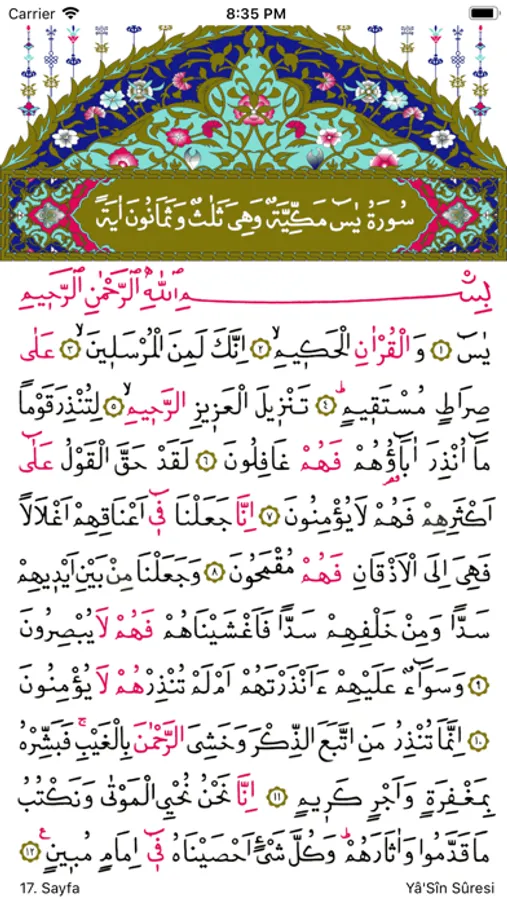 Carrier 8:35 PM
سُورَةُ يٰسٓ مَكِّيَّةٌ وَهِىَ ثَلٰثٌ وَثَمَانُونَ اٰيَةً
بِسْمِ اللّٰهِ الرَّحْمٰنِ الرَّحٖيمِ
يٰسٓ ﴿١﴾ وَالْقُرْاٰنِ الْحَكٖيمِۙ ﴿٢﴾ اِنَّكَ لَمِنَ الْمُرْسَلٖينَۙ ﴿٣﴾ عَلٰى
صِرَاطٍ مُسْتَقٖيمٍؕ ﴿٤﴾ تَنْزٖيلَ الْعَزٖيزِ الرَّحٖيمِۙ ﴿٥﴾ لِتُنْذِرَ قَوْمًا
مَٓا اُنْذِرَ اٰبَٓاؤُ۬هُمْ فَهُمْ غَافِلُونَ ﴿٦﴾ لَقَدْ حَقَّ الْقَوْلُ عَلٰٓى
اَكْثَرِهِمْ فَهُمْ لَا يُؤْمِنُونَ ﴿٧﴾ اِنَّا جَعَلْنَا فٖٓى اَعْنَاقِهِمْ اَغْلَالًا
فَهِىَ اِلَى الْاَذْقَانِ فَهُمْ مُقْمَحُونَ ﴿٨﴾ وَجَعَلْنَا مِنْ بَيْنِ اَيْدٖيهِمْ
سَدًّا وَمِنْ خَلْفِهِمْ سَدًّا فَاَغْشَيْنَاهُمْ فَهُمْ لَا يُبْصِرُونَ
﴿٩﴾ وَسَوَٓاءٌ عَلَيْهِمْ ءَاَنْذَرْتَهُمْ اَمْ لَمْ تُنْذِرْهُمْ لَا يُؤْمِنُونَ
﴿١٠﴾ اِنَّمَا تُنْذِرُ مَنِ اتَّبَعَ الذِّكْرَ وَخَشِىَ الرَّحْمٰنَ بِالْغَيْبِۚ فَبَشِّرْهُ
بِمَغْفِرَةٍ وَاَجْرٍ كَرٖيمٍ ﴿١١﴾ اِنَّا نَحْنُ نُحْيِ الْمَوْتٰى وَنَكْتُبُ
مَا قَدَّمُوا وَاٰثَارَهُمْؕ وَكُلَّ شَىْءٍ اَحْصَيْنَاهُ فٖٓى اِمَامٍ مُبٖينٍࣖ ﴿١٢﴾
17. Sayfa Yâ'Sîn Sûresi